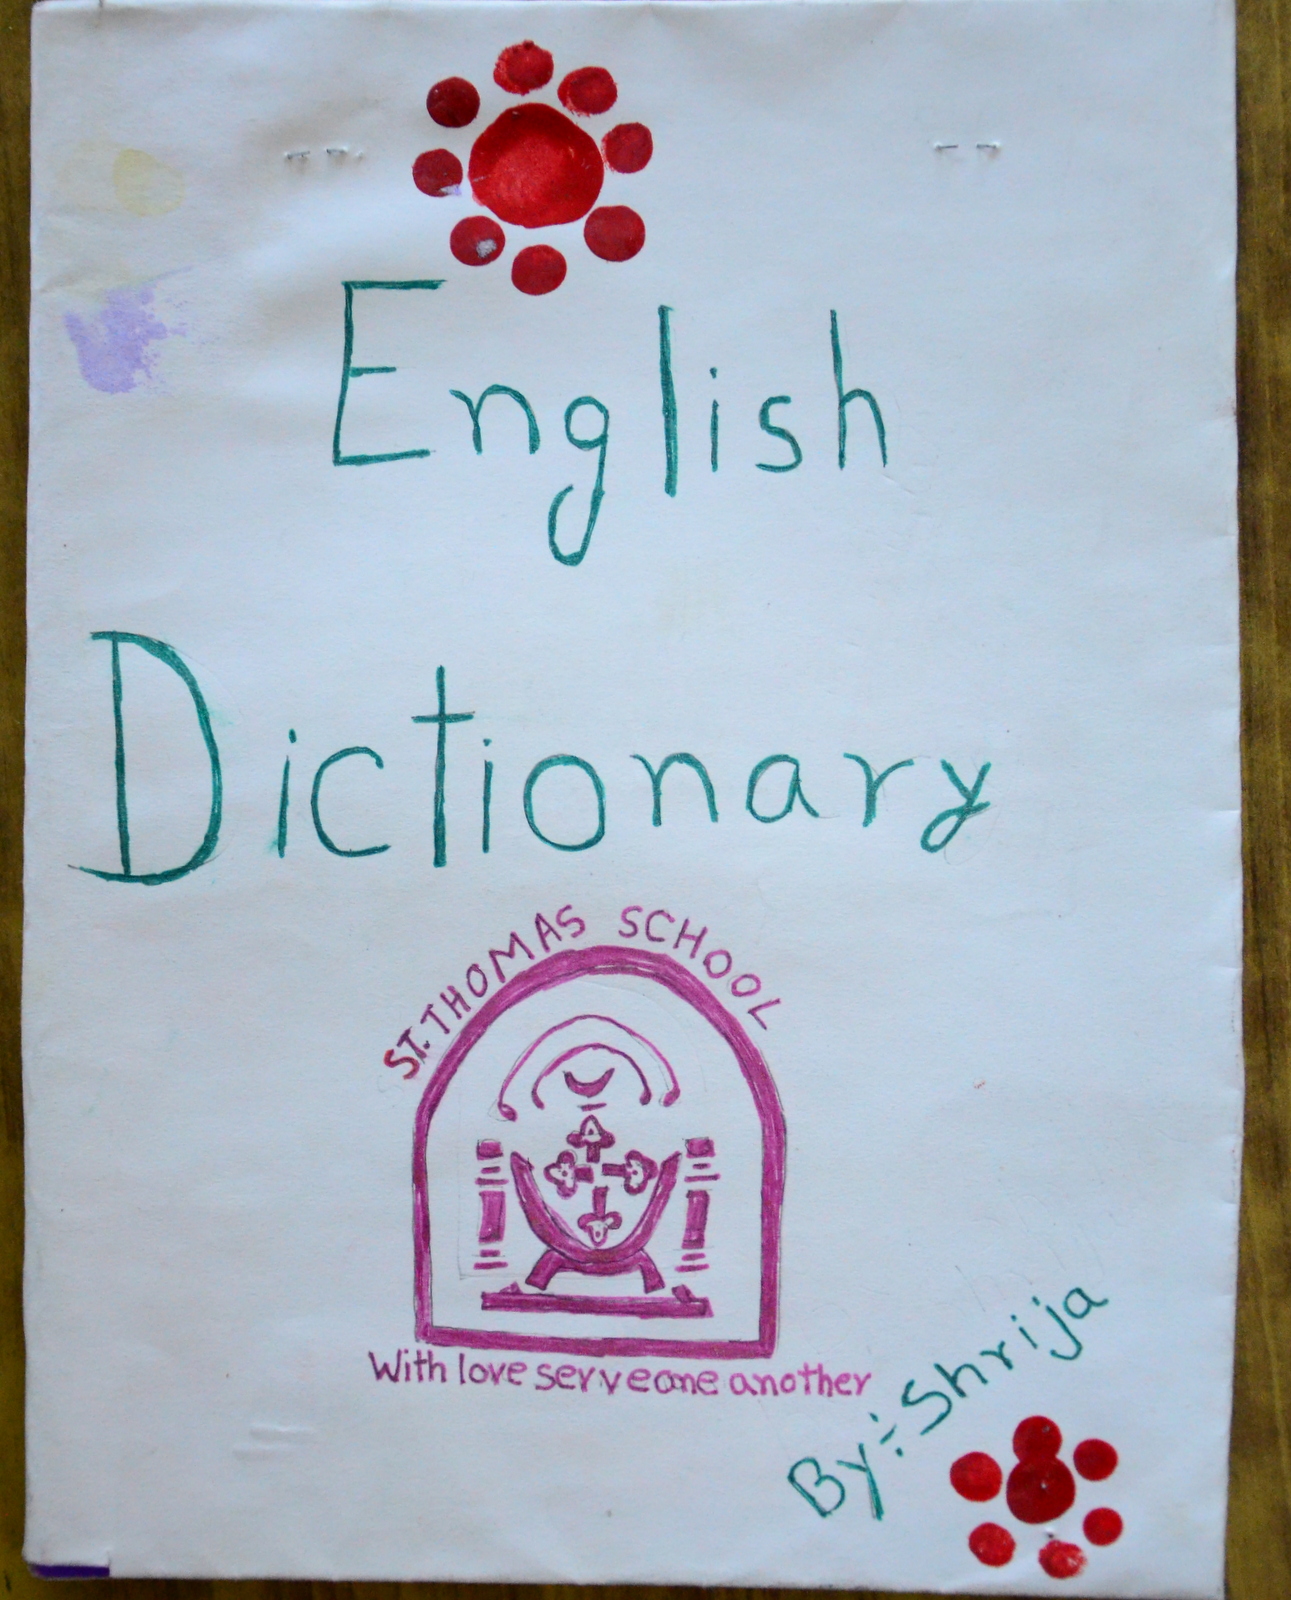 English
Dictionary
ST. THOMAS SCHOOL
With love serve one another
By:- Shrija